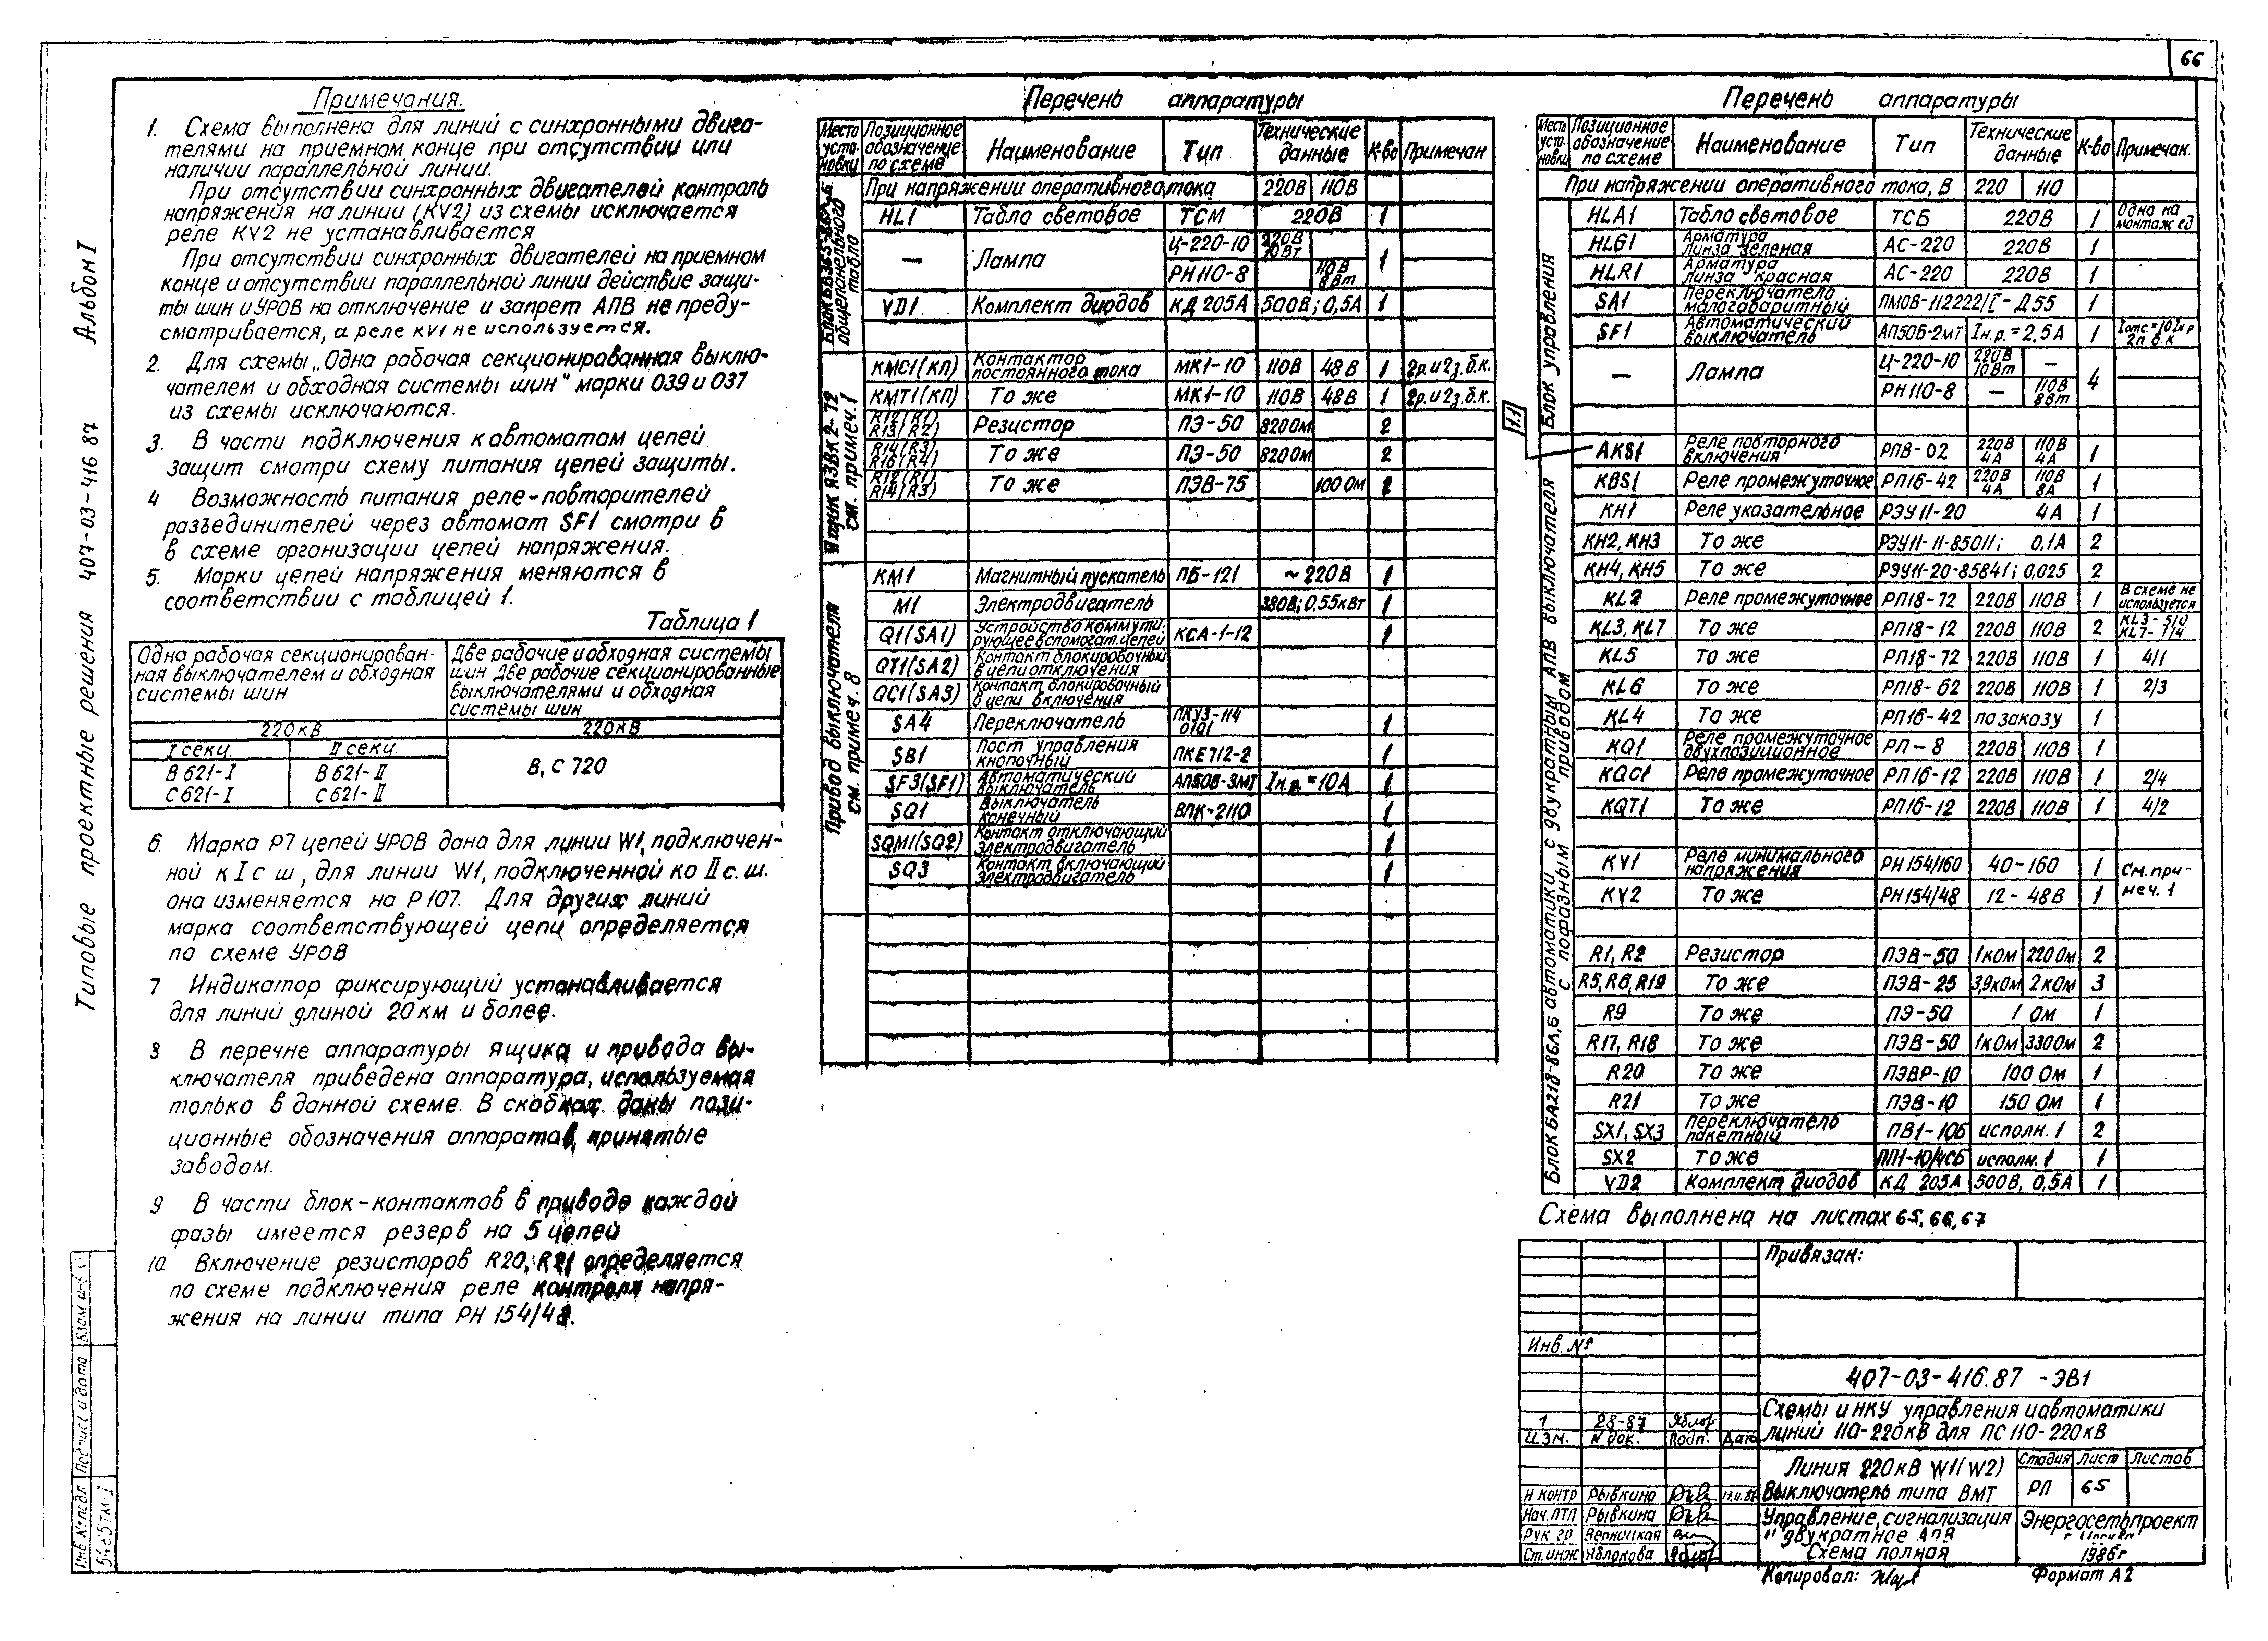 66
Типовые проектные решения 407-03-416 87 Альбом I
Примечания.
1. Схема выполнена для линий с синхронными двига-
телями на приемном конце при отсутствии или
наличии параллельной линии.
При отсутствии синхронных двигателей контроль
напряжения на линии (KV2) из схемы исключается
реле KV2 не устанавливается
При отсутствии синхронных двигателей на приемном
конце и отсутствии параллельной линии действие защи-
ты шин и УРОВ на отключение и запрет АПВ не преду-
сматривается, а реле KV1 не используется.
2. Для схемы „Одна рабочая секционированная выклю-
чателем и обходная системы шин" марки 039 и 037
из схемы исключаются.
3. В части подключения к автоматам цепей
защит смотри схему питания цепей защиты.
4 Возможность питания реле-повторителей
разъединителей через автомат SF1 смотри в
в схеме организации цепей напряжения.
5. Марки цепей напряжения меняются в
соответствии с таблицей 1.
Таблица 1
Одна рабочая секционирован-
ная выключателем и обходная
системы шин
Две рабочие и обходная системы
шин Две рабочие секционированные
выключателями и обходная
системы шин
220кВ 220кВ
I секц. II секц.
В 621-I В 621-II В, С 720
С 621-I С 621-II
6. Марка Р7 цепей УРОВ дана для линии W1, подключен-
ной к I с ш, для линии W1, подключенной ко II с. ш.
она изменяется на Р 107. Для других линий
марка соответствующей цепи определяется
по схеме УРОВ
7 Индикатор фиксирующий устанавливается
для линий длиной 20 км и более.
8 В перечне аппаратуры ящика и привода вы-
ключателя приведена аппаратура, используемая
только в данной схеме. В скобках даны пози-
ционные обозначения аппаратов, принятые
заводом.
9 В части блок-контактов в приводе каждой
фазы имеется резерв на 5 цепей
10. Включение резисторов R20, R21 определяется
по схеме подключения реле контроля напря-
жения на линии типа РН 154/48.
Перечень аппаратуры
Место установки Позиционное обозначение по схеме Наименование Тип Технические данные К-во Примечан
При напряжении оперативного тока 220В 110В
общепанельного табло
HL1 Табло световое ТСМ 220В 1
— Лампа Ц-220-10 220В 10Вт 1
РН110-8 110В 8Вт
VD1 Комплект диодов КД 205А 500В; 0,5А 1
Ящик ЯЗВК2-72 см. примеч. 1
КМС1(КП) Контактор постоянного тока МК1-10 110В 48В 1 2р.и 2з.б.к.
КМТ1(КП) То же МК1-10 110В 48В 1 2р.и 2з.б.к.
R12(R1) R13(R2) Резистор ПЭ-50 820Ом 2
R14(R3) R16(R4) То же ПЭ-50 820Ом 2
R12(R1) R14(R3) То же ПЭВ-75 100Ом 2
Привод выключателя см. примеч. 8
КМ1 Магнитный пускатель ПБ-121 ~220В 1
М1 Электродвигатель 380В; 0.55кВт 1
Q1(SA1) Устройство коммути- рующее вспомогат. цепей КСА-1-12 1
QT1(SA2) Контакт блокировочный в цепи отключения
QC1(SA3) Контакт блокировочный в цепи включения
SA4 Переключатель ПКУ3-114 0101 1
SB1 Пост управления кнопочный ПКЕ712-2 1
SF3(SF1) Автоматический выключатель АП50Б-3МТ Iн.р.=10А 1
SQ1 Выключатель конечный ВПК-2110 1
SQM1(SQ2) Контакт отключающий электродвигатель 1
SQ3 Контакт включающий электродвигатель 1
Перечень аппаратуры
Место установки Позиционное обозначение по схеме Наименование Тип Технические данные К-во Примечан.
При напряжении оперативного тока, В 220 110
Блок управления
HLA1 Табло световое ТСБ 220В 1 Одно на монтаж ед
HLG1 Арматура линза зеленая АС-220 220В 1
HLR1 Арматура линза красная АС-220 220В 1
SA1 Переключатель малогабаритный ПМОВ-112222/I-Д55 1
SF1 Автоматический выключатель АП50Б-2МТ Iн.р.=2,5А 1 Iотс.=10Iнр 2п б.к
— Лампа Ц-220-10 220В 10Вт — 4
РН110-8 — 110В 8Вт
1.1
Блок БА218-86А,Б автоматики с двукратным АПВ выключателя с пофазным приводом
AKS1 Реле повторного включения РПВ-02 220В 4А 110В 4А 1
KBS1 Реле промежуточное РП16-42 220В 4А 110В 8А 1
KH1 Реле указательное РЭУ11-20 4А 1
KH2, KH3 То же РЭУ11-11-85011; 0,1А 2
KH4, KH5 То же РЭУ11-20-85841; 0,025 2
KL2 Реле промежуточное РП18-72 220В 110В 1 В схеме не используется
KL3, KL7 То же РП18-12 220В 110В 2 KL3-5/0 KL7-1/4
KL5 То же РП18-72 220В 110В 1 4/1
KL6 То же РП18-62 220В 110В 1 2/3
KL4 То же РП16-42 по заказу 1
KQ1 Реле промежуточное двухпозиционное РП-8 220В 110В 1
KQC1 Реле промежуточное РП16-12 220В 110В 1 2/4
KQT1 То же РП16-12 220В 110В 1 4/2
KV1 Реле минимального напряжения РН154/160 40-160 1 См. при-
KV2 То же РН154/48 12-48В 1 меч. 1
R1, R2 Резистор ПЭВ-50 1кОм 220Ом 2
R5, R6, R19 То же ПЭВ-25 3,9кОм 2кОм 3
R9 То же ПЭ-50 1 Ом 1
R17, R18 То же ПЭВ-50 1кОм 330Ом 2
R20 То же ПЭВР-10 100 Ом 1
R21 То же ПЭВ-10 150 Ом 1
SX1, SX3 Переключатель пакетный ПВ1-10б исполн. 1 2
SX2 То же исполн. 1 1
VD2 Комплект диодов КД 205А 500В, 0,5А 1
Схема выполнена на листах 65, 66, 67
Привязан:
Инв. №
407-03-416.87 -ЭВ1
1 28-87
Изм. N док. Подп. Дата
Схемы и НКУ управления и автоматики
линий 110-220кВ для ПС 110-220кВ
Линия 220кВ W1(W2)
Выключатель типа ВМТ
Стадия Лист Листов
РП 65
Н контр Рывкина
Нач.ПТП Рывкина
Рук гр Верницкая
Ст. инж Яблокова
Управление, сигнализация
и двукратное АПВ
Схема полная
Энергосетьпроект
1986г
Копировал:
Формат А2
Инв № подл Подпись и дата Взам инв №
5485тм-I